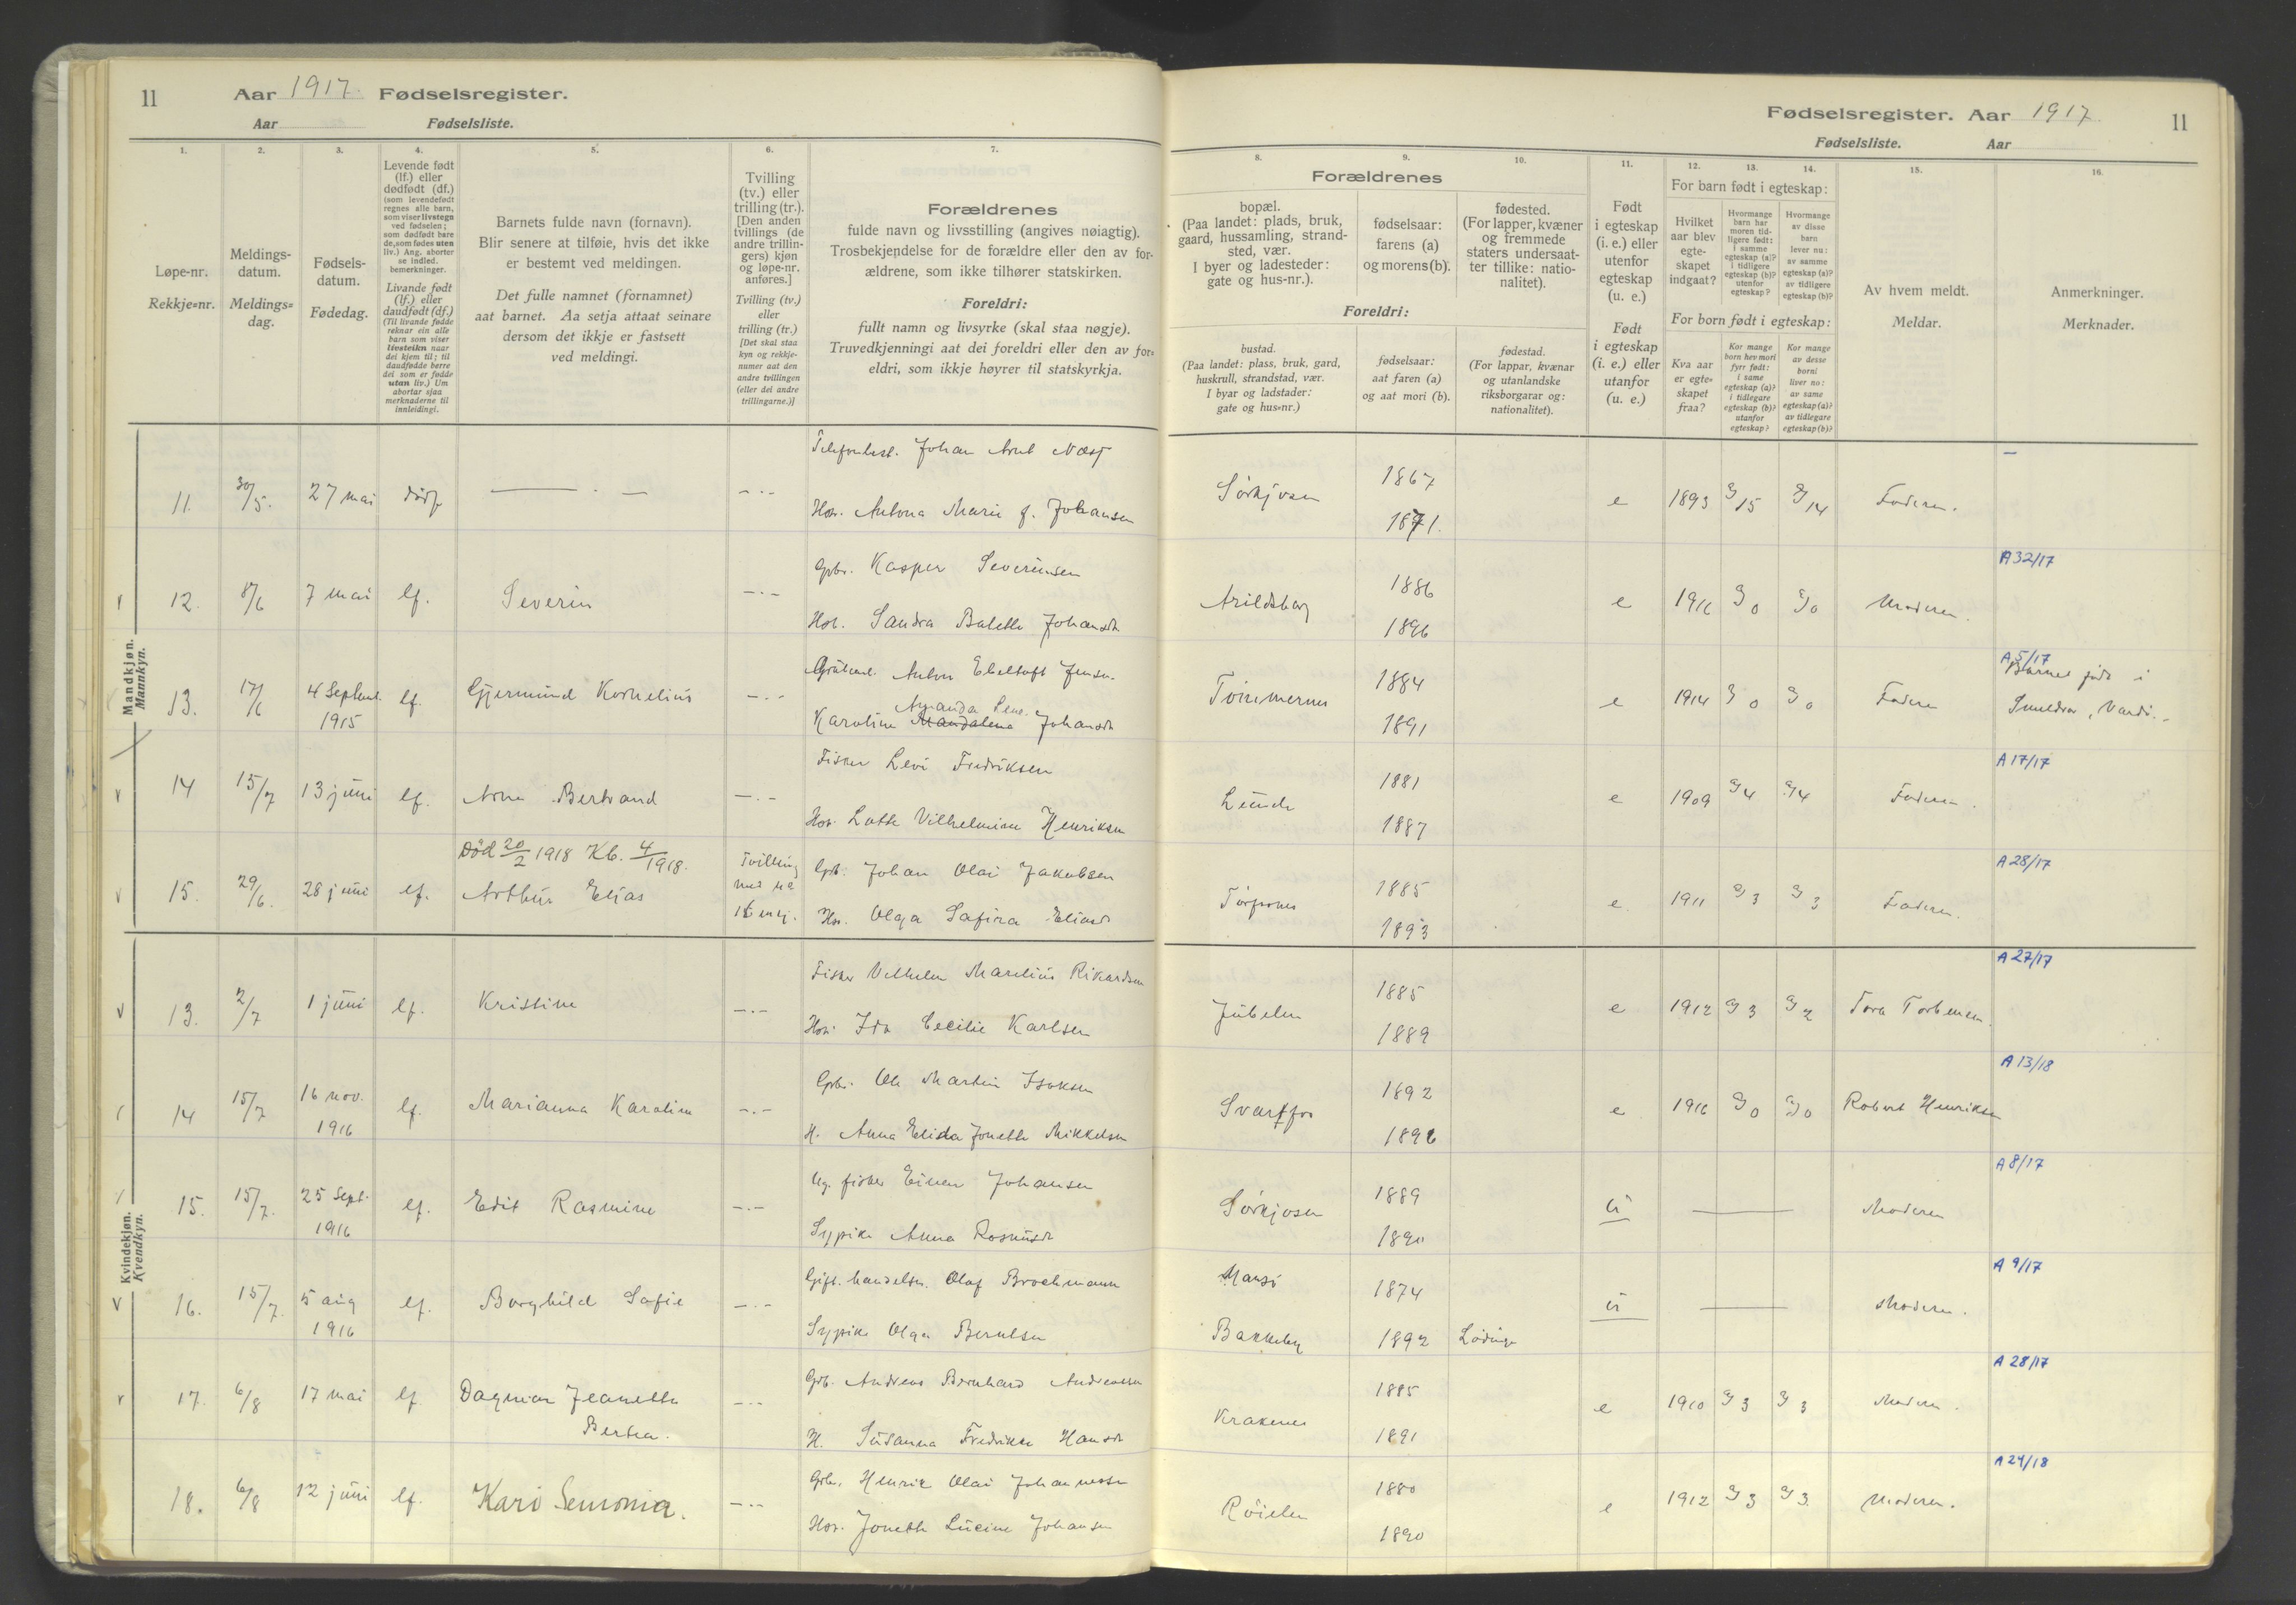 11
Aar 1917. Fødselsregister.
Aar Fødselsliste.
1. 2. 3. 4. 5. 6. 7.
Løpe-nr.
Rekkje=nr.
Meldings-
datum.
Meldings=
dag.
Fødsels-
datum.
Fødedag.
Levende født
(lf.) eller
dødfødt (df.)
(som levendefødt
regnes alle barn,
som viser livstegn
ved fødselen;
som dødfødt bare
de, som fødes uten
liv.) Ang. aborter
se indled.
bemerkninger.
Livande født
(lf.) eller
daudfødt (df.)
(Til livande fødde
reknar ein alle
barn som viser
livsteikn naar
dei kjem til; til
daudfødde berre
dei som er fødde
utan liv.) Um
abortar sjaa
merknaderne til
innleidingi.
Barnets fulde navn (fornavn).
Blir senere at tilføie, hvis det ikke
er bestemt ved meldingen.
Det fulle namnet (fornamnet)
aat barnet. Aa setja attaat seinare
dersom det ikkje er fastsett
ved meldingi.
Tvilling
(tv.) eller
trilling (tr.).
[Den anden
tvillings (de
andre trillin-
gers) kjøn
og løpe-nr.
anføres.]
Tvilling (tv.)
eller
trilling (tr.)
[Det skal staa
kyn og rekkje-
numer aat den
andre tvillingen
(eller dei andre
trillingarne.)]
Forældrenes
fulde navn og livsstilling (angives nøiagtig).
Trosbekjendelse for de forældre eller den av for-
ældrene, som ikke tilhører statskirken.
Foreldri:
fullt namn og livsyrke (skal staa nøgje).
Truvedkjenningi aat dei foreldri eller den av for=
eldri, som ikkje høyrer til statskyrkja.
Mandkjøn.
Mannkyn.
11. 30/5. 27 mai dødf — . — — . —
Telefonbest. Johan Arnt Næss
Hus. Antona Marie f. Johansen
v 12. 8/6 7 mai lf. Severin — . —
Gpbr. Kasper Severinsen
Hus. Sandra Balette Johansdt
13. 17/6 4 Septemb. 1915 lf. Gjermund Kornelius — . —
Anton Ebeltoft Jensen
Amanda Lene
Karoline Mandalena Johansdt
v 14 15/7 13 juni lf. Arne Bertrand — . —
Fisker Levi Fredriksen
Hus. Lotte Vilhelmine Henriksen
Død 20/2 1918 Kb. 4/1918.
v 15. 29/6. 28 juni lf. Arthur Elias
Tvilling
med
Gpb. Johan Olai Jakobsen
Hus. Olga Safira Eliasdt
Kvindekjøn.
Kvendkyn.
v 13. 2/7 1 juni lf. Kristine — . —
Fisker Vilhelm Marelius Rikardsen
Hus. Ida Cecilie Karlsen
14 15/7 16 nov. 1916 lf. Marianna Karoline — . —
Gpbr. Ole Martin Isaksen
H. Anna Elida Jonette Mikkelsen
15. 15/7. 25 Sept. 1916 lf. Edit Rasmine — . —
Ug. fisker Einar Johansen
Sypike Anna Rasmusdt
v 16. 15/7. 5 aug 1916 lf. Borghild Sofie — . —
Gift. handelsm. Olaf Brochmann
Sypike Olga Berntsen
v 17. 6/8 17 mai lf Dagmar Jeanette
Bertea. — . —
Gpb. Andreas Bernhard Andreassen
H. Susanna Fredrikke Hansdt
18. 6/8 12 juni lf. Kari Semonia. — . —
Gpbr. Henrik Olai Johannessen
Hus. Jonette Lucine Johansen
Fødselsregister. Aar 1917. 11
Fødselsliste. Aar
8. 9. 10. 11. 12. 13. 14. 15. 16.
Forældrenes
bopæl.
(Paa landet: plads, bruk,
gaard, hussamling, strand-
sted, vær.
I byer og ladesteder:
gate og hus-nr.).
fødselsaar:
farens (a)
og morens (b).
fødested.
(For lapper, kvæner
og fremmede
staters undersaat-
ter tillike: natio-
nalitet).
Foreldri:
bustad.
(Paa landet: plass, bruk, gard,
huskrull, strandstad, vær.
I byar og ladstader:
gate og hus=nr.)
fødselsaar:
aat faren (a)
og aat mori (b).
fødestad.
(For lappar, kvænar
og utanlandske
riksborgarar og:
nationalitet).
Født
i egteskap
(i. e.) eller
utenfor
egteskap
(u. e.)
Født
i egteskap
(i. e.) eller
utanfor
(u. e.)
For barn født i egteskap:
Hvilket
aar blev
egte-
skapet
indgaat?
Hvormange
barn har
moren tid-
ligere født:
i samme
egteskap (a)?
i tidligere
egteskap (b)?
utenfor
egteskap?
Hvormange
av disse
barn
lever nu:
av samme
egteskap (a)?
av tidligere
egteskap (b)?
For born født i egteskap:
Kva aar
er egte=
skapet
fraa?
Kor mange
born hev mori
fyrr født:
i same
egteskap (a)?
i tidlegare
egteskap (b)?
utanfor
egteskap?
Kor mange
av desse
borni
liver no:
av same
egteskap (a)?
av tidlegare
egteskap (b)?
Av hvem meldt.
Meldar.
Anmerkninger.
Merknader.
Sørkjosen 1867 1871. e 1893 a/15 a/14 Faderen. —
Arildsberg 1886 1896 e 1916 a/0 a/0 Moderen. A 32/17
1884 1891 e 1914 a/0 a/0 Faderen A 5/17
Barnet født i
Vardø.
Lunde 1881 1887 e 1909 a/4 a/4 Faderen. A 17/17
1885 1893 e 1911 a/3 a/3 Faderen. A 28/17
Jubelen 1885 1889 e 1912 a/3 a/2 Tora Torbensen. A 27/17
Svartfos 1892 1896 e 1916 a/0 a/0 Robert Henriksen A 13/18
Sørkjosen 1889 1890 u — Moderen A 8/17
1874 u — Moderen. A 9/17
Bakkeby 1892 Lødingen
Krakenes 1885 1891 e 1910 a/3 a/3 Moderen. A 28/17
Røielen 1880 1890 e 1912 a/3 a/3. Moderen. A 24/18